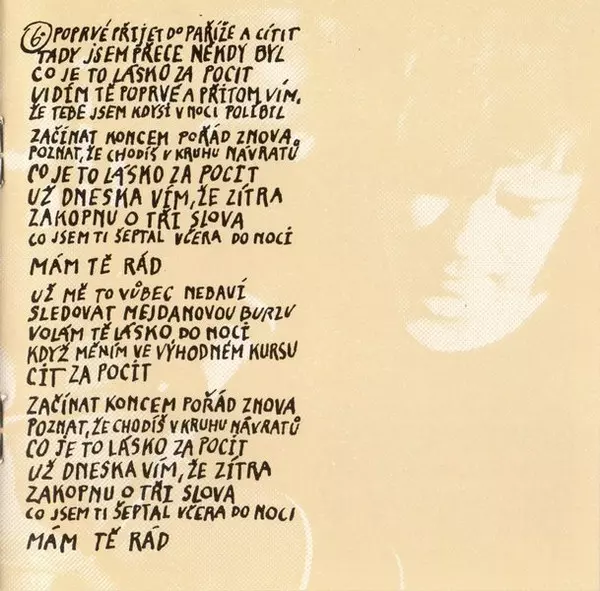 6. POPRVÉ PŘIJET DO PAŘÍŽE A CÍTIT
TADY JSEM PŘECE NĚKDY BYL
CO JE TO LÁSKO ZA POCIT
VIDÍM TĚ POPRVÉ A PŘITOM VÍM,
ŽE TEBE JSEM KDYSI V NOCI POLÍBIL
ZAČÍNAT KONCEM POŘÁD ZNOVA
POZNAT, ŽE CHODÍŠ V KRUHU NÁVRATŮ
CO JE TO LÁSKO ZA POCIT
UŽ DNESKA VÍM, ŽE ZÍTRA
ZAKOPNU O TŘI SLOVA
CO JSEM TI ŠEPTAL VČERA DO NOCI
MÁM TĚ RÁD
UŽ MĚ TO VŮBEC NEBAVÍ
SLEDOVAT MEJDANOVOU BURZU
VOLÁM TĚ LÁSKO DO NOCI
KDYŽ MĚNÍM VE VÝHODNÉM KURSU
CIT ZA POCIT
ZAČÍNAT KONCEM POŘÁD ZNOVA
POZNAT, ŽE CHODÍŠ V KRUHU NÁVRATŮ
CO JE TO LÁSKO ZA POCIT
UŽ DNESKA VÍM, ŽE ZÍTRA
ZAKOPNU O TŘI SLOVA
CO JSEM TI ŠEPTAL VČERA DO NOCI
MÁM TĚ RÁD